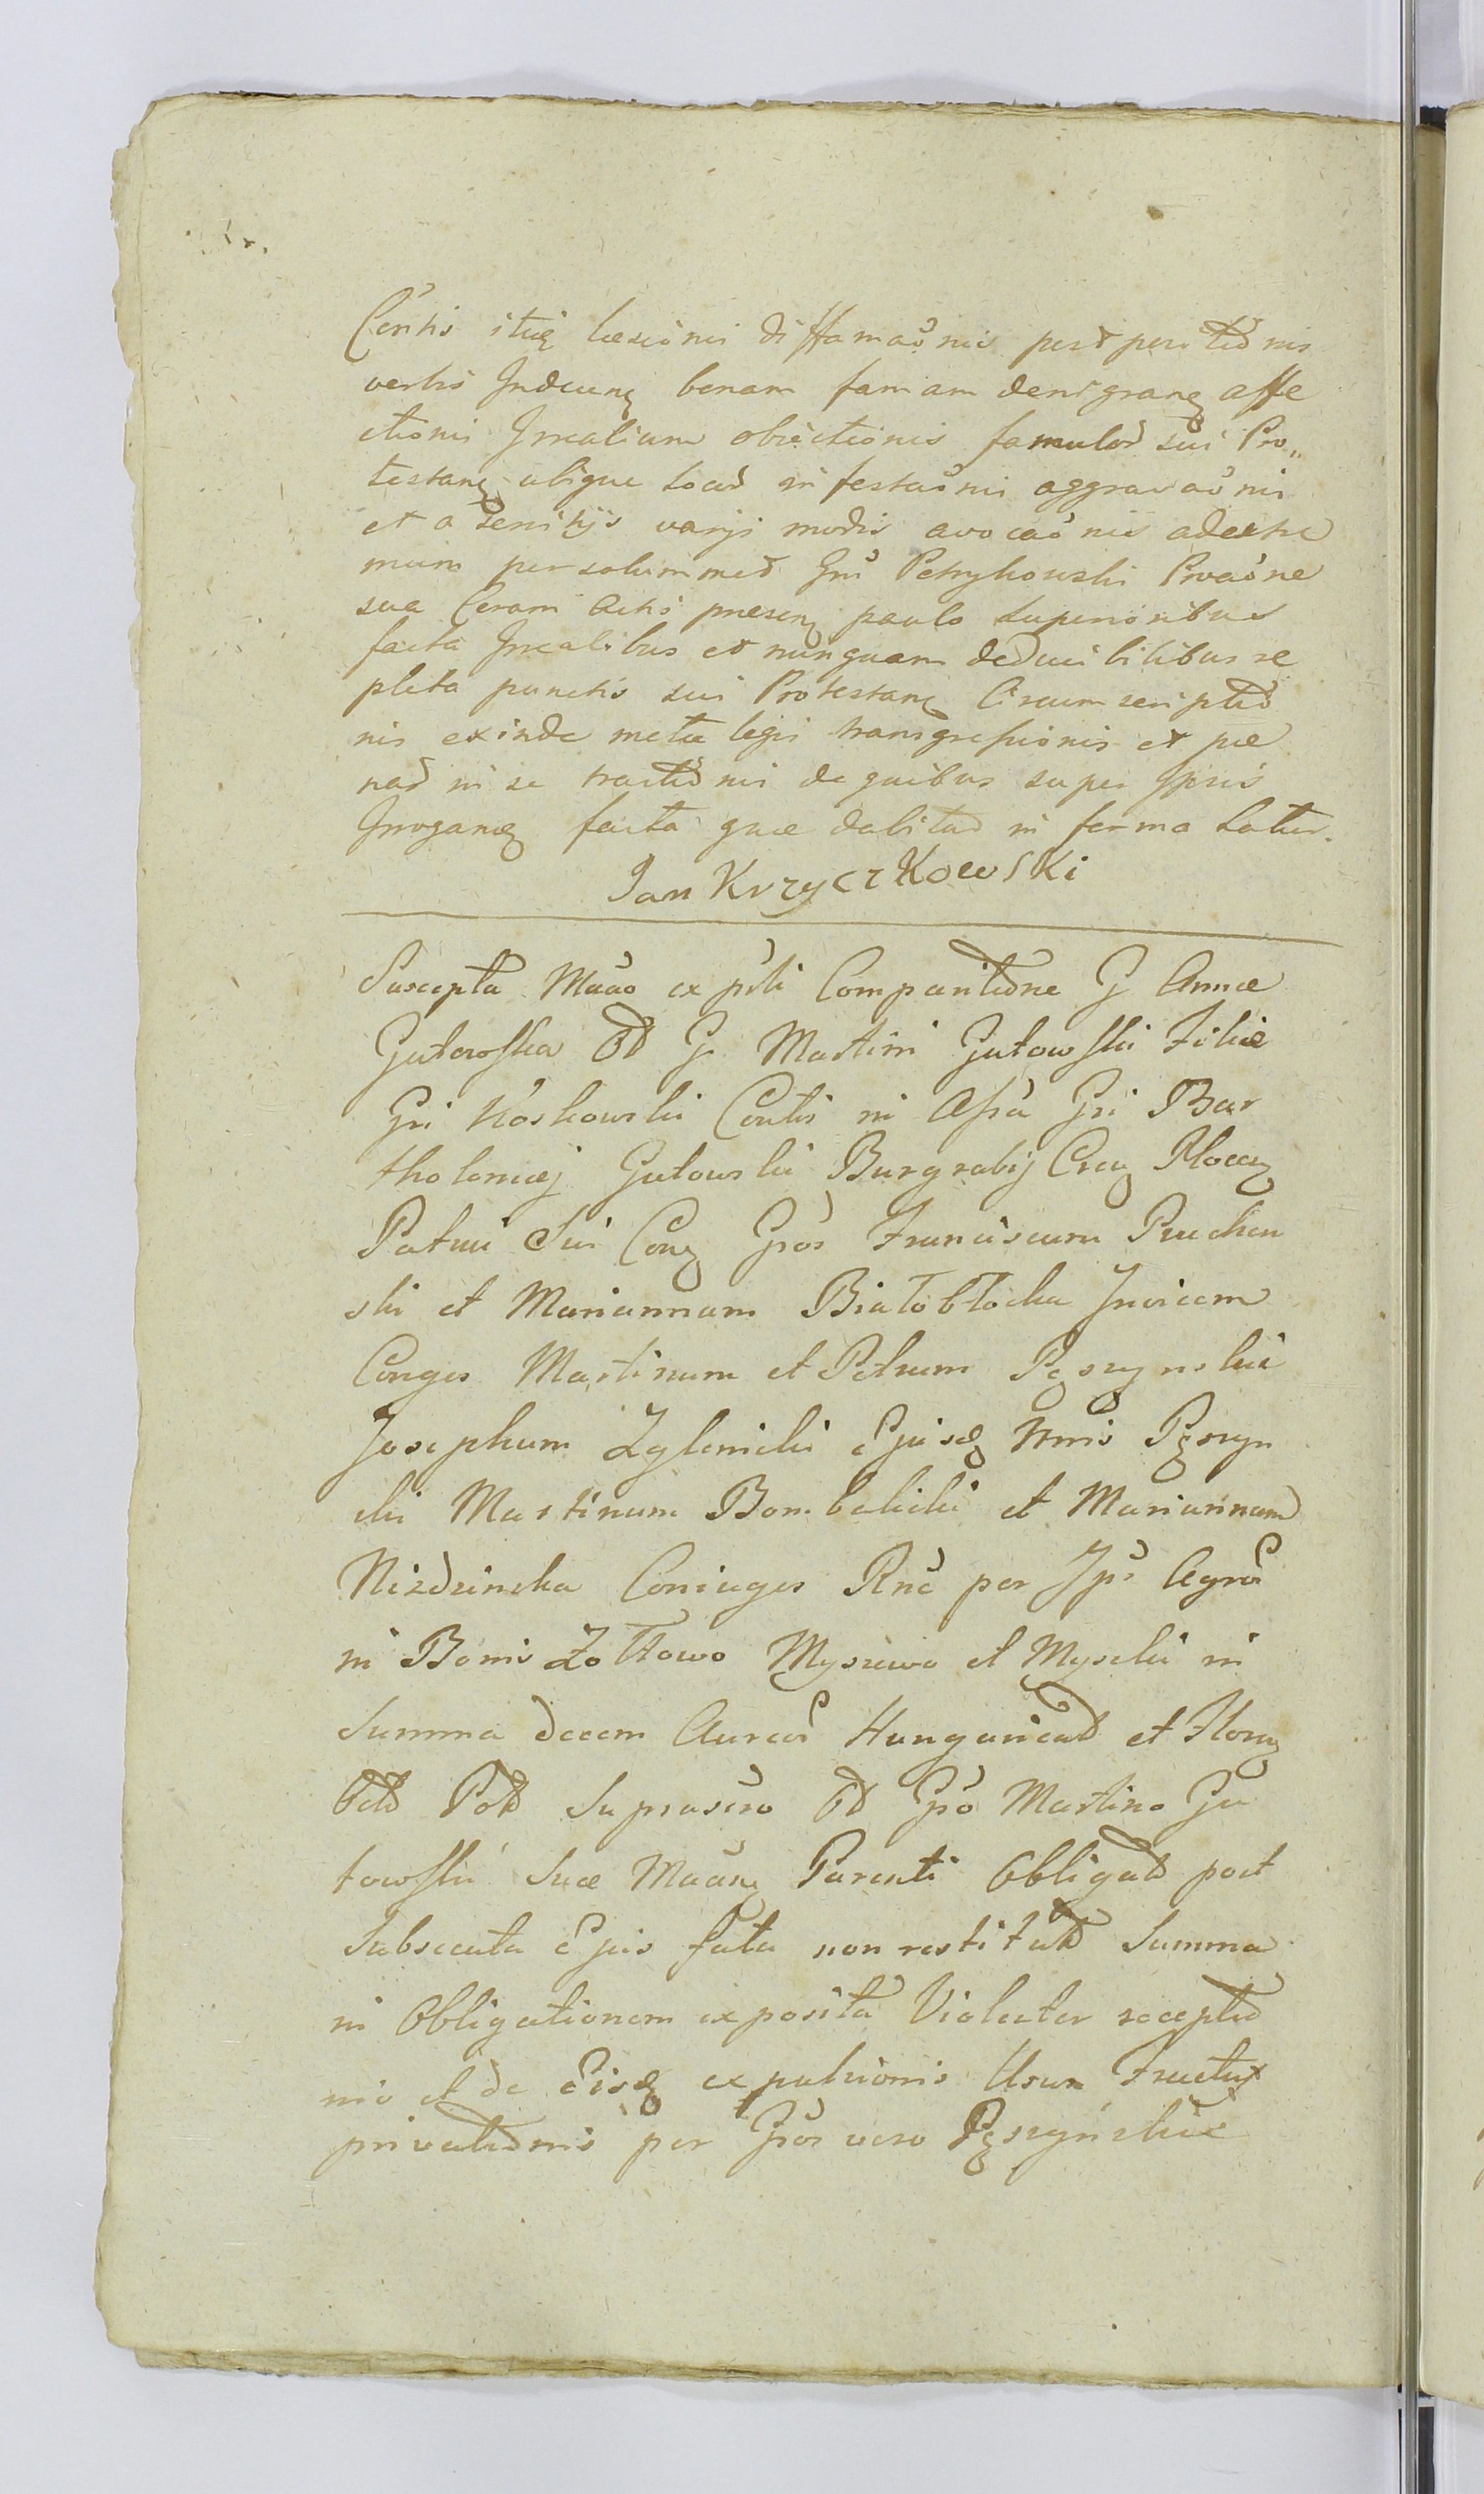 Centis itaq læsionis diffamaõnis per
verbis Indecenq bonam famam denigranq affe
ctionis Irrealium obiectionis famulor sui Pro„
testanq ubique Locor infestaõnis aggravaõnis
et a servitijs varijs modis avocaõnis ad extre
mum per solummet Gnu Petrykowski Proaõne
sua Coram Actis præsenq paulo superioribus
facta Irrealibus et nunquam deducibilibus re
pleta punctis sui Protestanq Circumscriptio
nis exinde metæ legis transgressionis et pæ
nar in se tractionis de quibus super Ipsis
Irroganq facta quæ dabitur in forma Latius.
Jan Krzyczkowski
Suscepta Maõo ex psti Comparitione G Annæ
Gutowska Od G Martini Gutowski Filiæ
Gsi Koskowski Contis in Assa Gsi Bar
tholomæj Gutowski Burgrabij Crag Plocen
Patrui Sui Conq Gsos Franciscum Pruchen
ski et Mariannam Białobłocka Invicem
Conges Martinum et Petrum Pęszynskie
Josephum Zglenicki Ejusdq Nnis Pęszyn
ski Martinum Bombalicki et Mariannam
Nizdzinska Coniuges Rnẽ per Ips Agros
in Bonis Żołtowo Myszewo et Myselu in
Summa decem Aureor Hungaricalr et Florq
Octo Polr Suprascro Od Gso Martino Gu
towski Suæ Maanq Parenti Obligatr post
Subsecuta Ejus fata non restitutr Summa
in Obligationem exposita Violenter receptio
nis et de Eisdq expulsionis Usus Fructus
privationis per Gsos vero Pęszyńskie